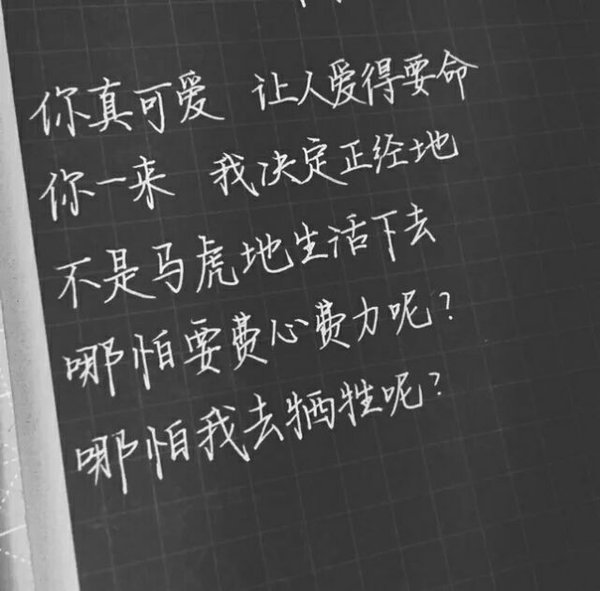 你真可爱 让人爱得要命
你一来 我决定正经地
不是马虎地生活下去
哪怕要费心费力呢？
哪怕我去牺牲呢？